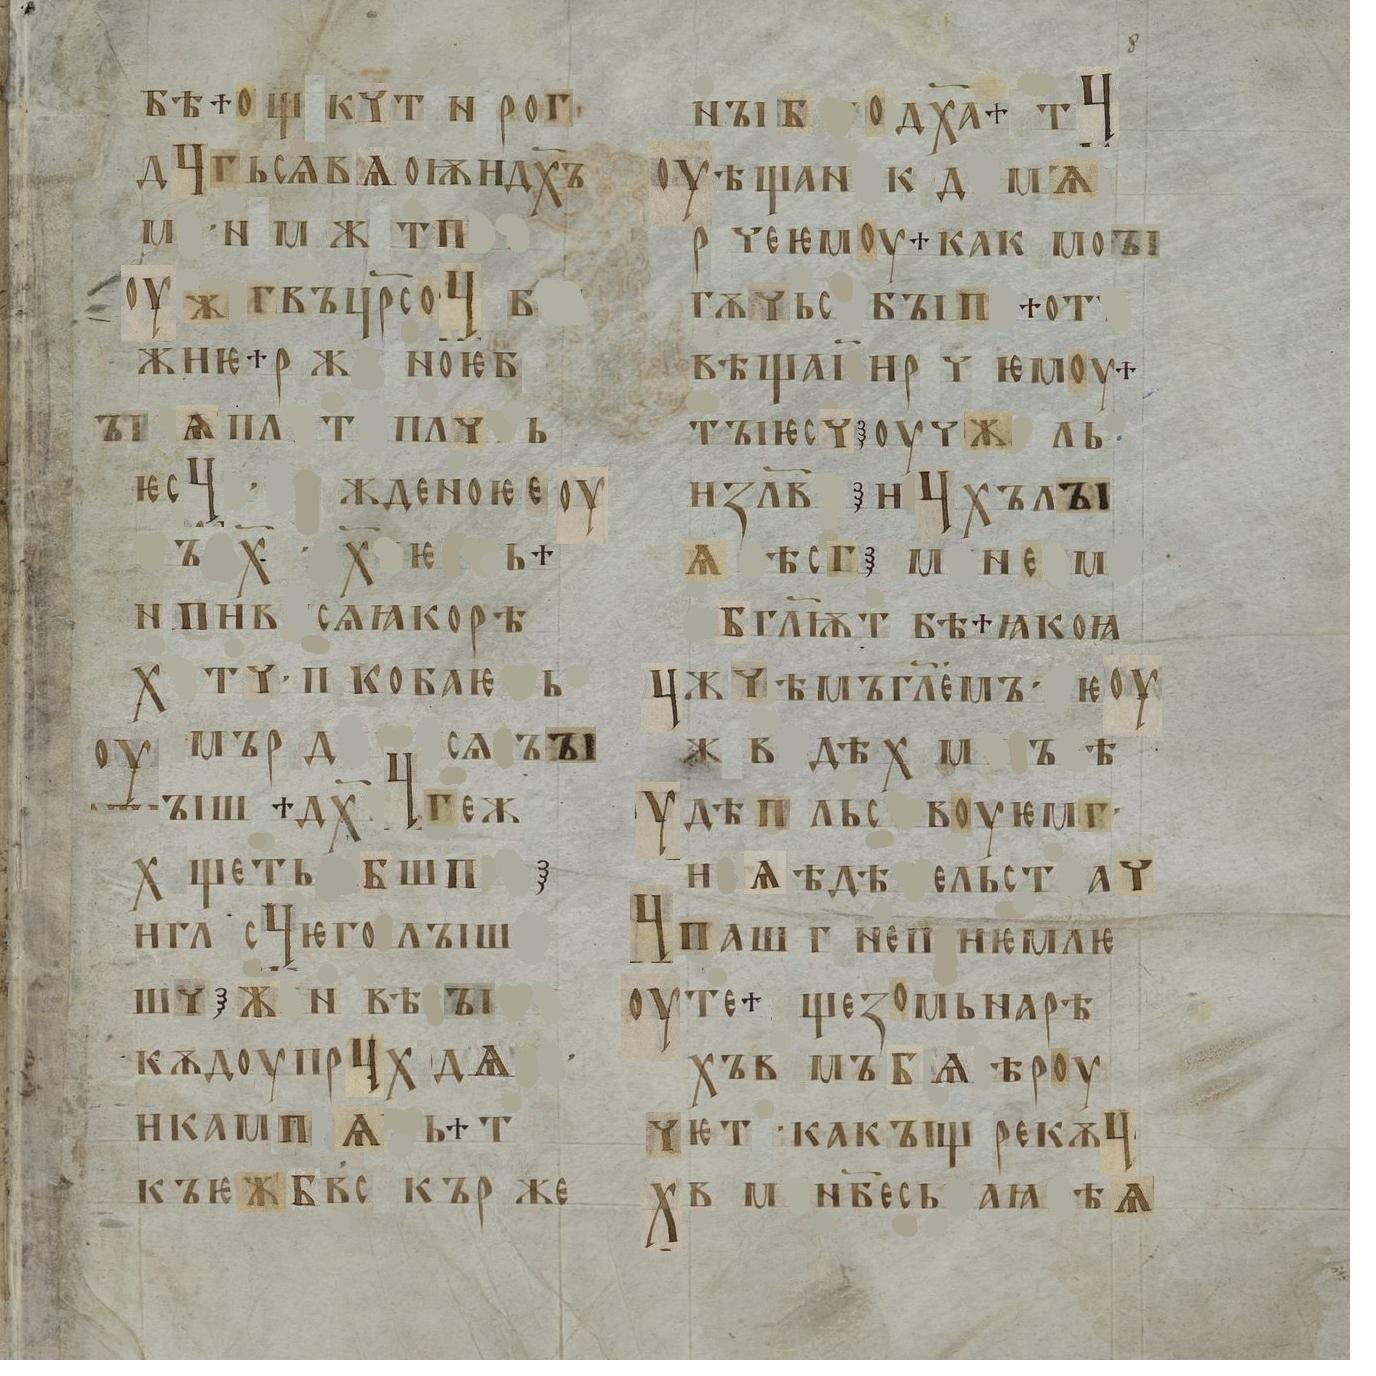 бѣ+ощ кѵт н рог
дчгьсѧвѧоѭндх҃ъ
м н м ж тп
оу ж гвъцр҃со ч б
жнѥ+р ж ноѥб
ъі ѧпл т плѵ ь
ѥсч жденоѥе оу
ъ х҃ х҃ ѥ ь+
н пнв сѧꙗкорѣ
х тѵ· п кобаѥ ь
оу мър д сѧ ъъі
ъіш +дх҃ чгеж
х щеть бшп ꙁ
нгл счѥго лъіш
шѵꙁж н вѣ ъі
кѫдоупрчх дѧ
нкамп ѧ ь+т
къѥжбв҃с кър же
ныб одх҃а+ тч
оуѣщан к д мѫ
р ѵеѥмоу+как моъі
гѫѵьс бъіп +от
вѣщаі҃ нр ѵ ѥмоу+
тъіѥсѵꙁоуѵж ль·
нꙁл҃в ꙁнчхълъі
ѧ ѣсгꙁ м не м
бгл҃ѭт бѣ+ꙗкоꙗ
чжѵѣмъгл҃емъ· ѥоу
ж в дѣх м ъ ѣ
удѣп льс воуѥмг·
н ѧѣдѣ ельст аѵ
чпаш г неп нѥмлѥ
оуте+ щеꙁомьнарѣ
хъв мъбѧ ѣроу
ѵѥт ·какъіщ рекѫч
хв м нб҃есь аꙗ ѣѧ